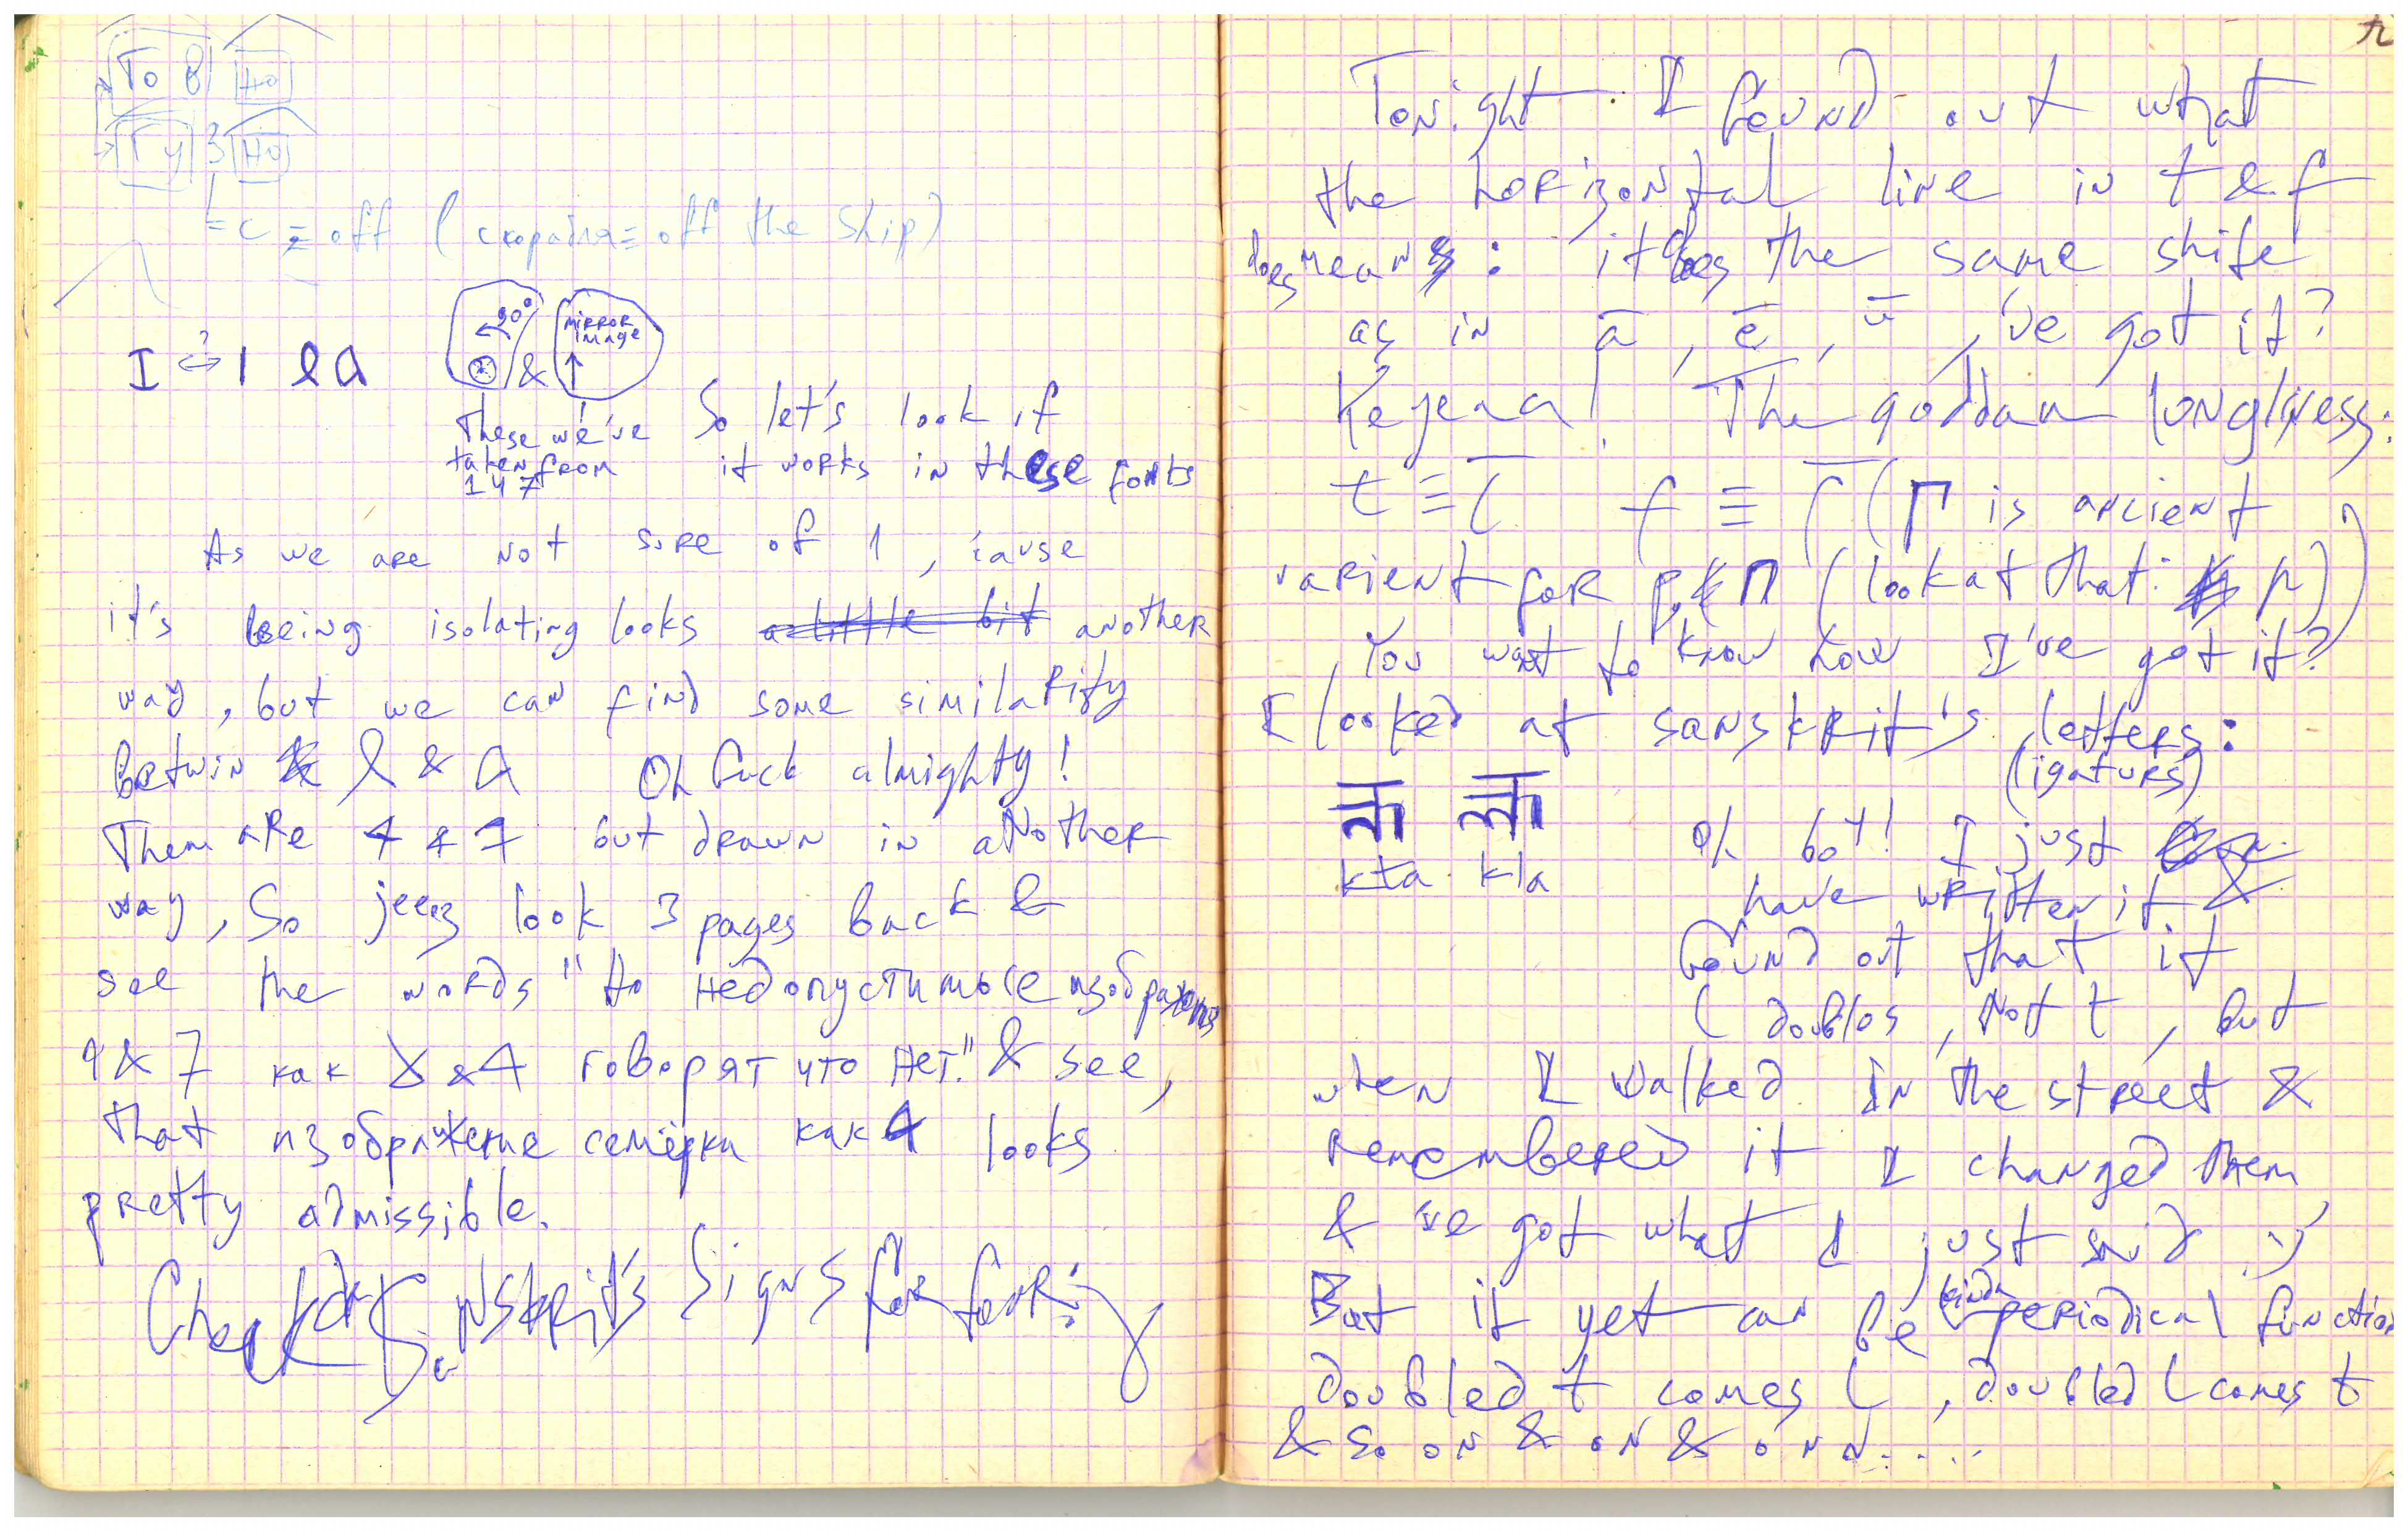 То в но
Ту з но
с = off (с корабля = off the ship)
I ↔ 1 l a
90° & mirror image
These we've
taken from
147
So let's look if
it works in these fonts
As we are not sure of 1, 'cause
it's being isolating looks a little bit another
way, but we can find some similarity
betwin l & a Oh fuck almighty!
Them are 4 & 7 but drawn in another
way, So jeeez look 3 pages back &
see the words "Но недопустимые изображения
4 & 7 как & 4 говорят что нет." & see,
that изображение семёрки как 4 looks
pretty admissible.
Check Sanskrit's signs for four:
Tonight I found out what
the horizontal line in t & f
does mean: it does the same shite
as in ā, ē, ū, 've got it?
The goddam longliness:
t ≡ ζ̄ f ≡ Γ̄ (Γ is ancient
varient for p & п (look at that: p))
You want to know how I've got it?
I looked at sanskrit's letters:
(ligaturs)
kta kla
oh boy! I just
have written it &
found out that it
l doubles, Not t, but
when I walked in the street &
remembered it I changed them
& 've got what I just said :)
But it yet can be kinda periodical function
doubled t comes l, doubled l comes t
& so on & on & onn....